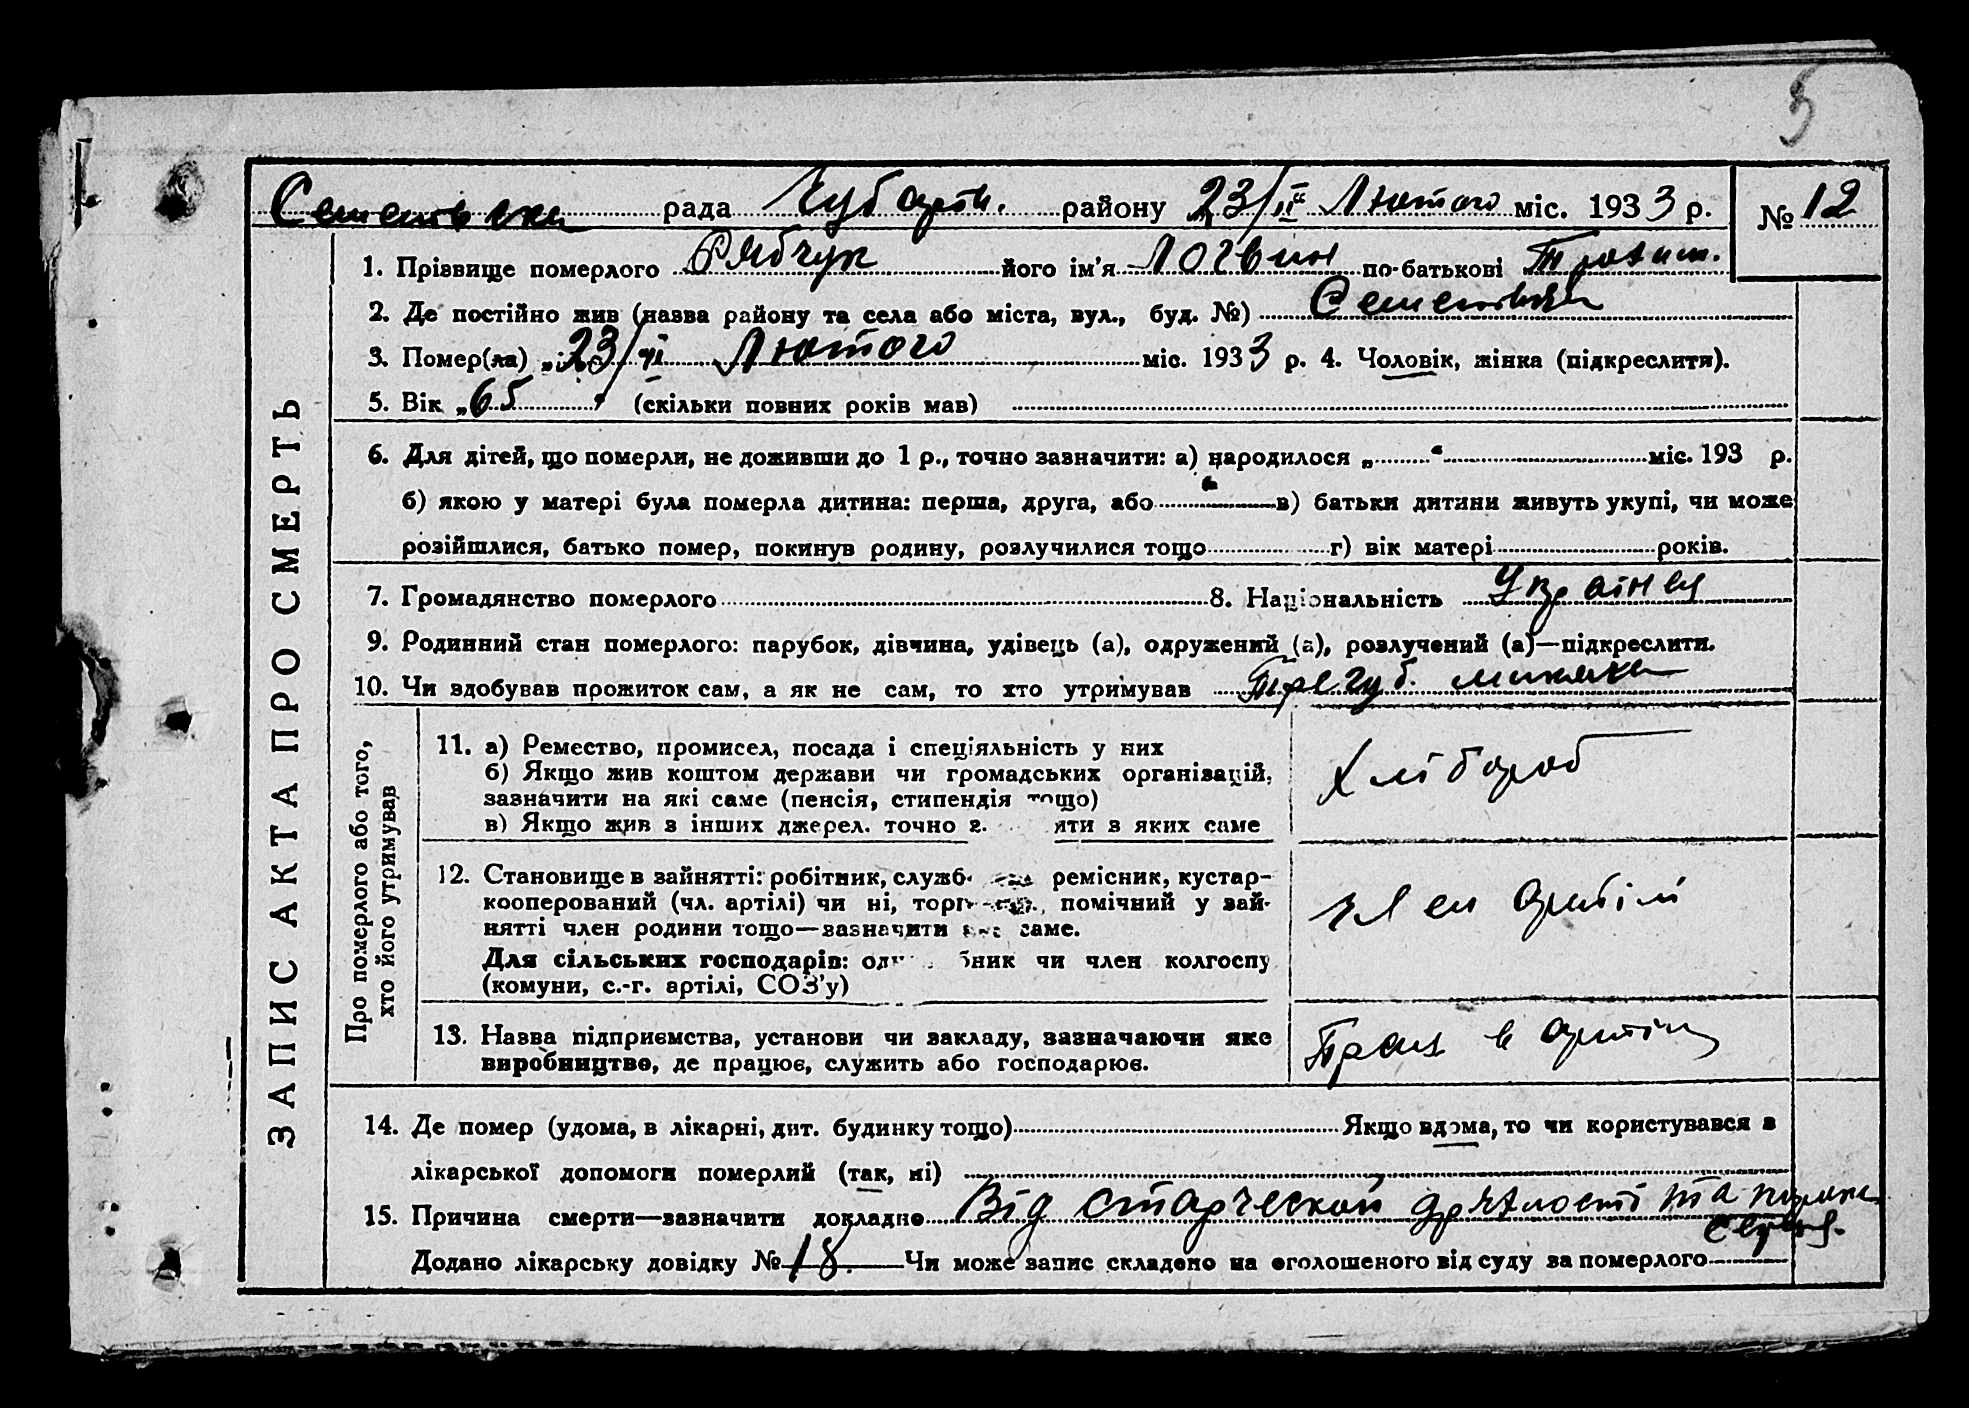 5
Семенівська рада Чубарів. району 23/II Лютого міс. 1933 р. № 12
ЗАПИС АКТА ПРО СМЕРТЬ
1. Прізвище померлого Рябчук його ім'я Логвин по-батькові
2. Де постійно жив (назва району та села або міста, вул., буд. №) Семенівка
3. Помер(ла) „ 23/II Лютого міс. 1933 р. 4. Чоловік, жінка (підкреслити).
5. Вік „65 " (скільки повних років мав)
6. Для дітей, що померли, не доживши до 1 р., точно зазначити: а) народилося „ " міс. 193 р.
б) якою у матері була померла дитина: перша, друга, або в) батьки дитини живуть укупі, чи може
розійшлися, батько помер, покинув родину, розлучилися тощо г) вік матері років.
7. Громадянство померлого 8. Національність
9. Родинний стан померлого: парубок, дівчина, удівець (а), одружений (а), розлучений (а)—підкреслити.
10. Чи здобував прожиток сам, а як не сам, то хто утримував
Про померлого або того,
хто його утримував
11. а) Ремество, промисел, посада і спеціяльність у них
б) Якщо жив коштом держави чи громадських організацій,
зазначити на які саме (пенсія, стипендія тощо)
в) Якщо жив з інших джерел. точно з. ити з яких саме
Хлібороб
12. Становище в зайнятті: робітник, служб ремісник, кустар-
кооперований (чл. артілі) чи ні, торг помічний у зай-
нятті член родини тощо—зазначити саме.
Для сільських господарів: од бник чи член колгоспу
(комуни, с.-г. артілі, СОЗ'у)
член артілі
13. Назва підприємства, установи чи закладу, зазначаючи яке
виробництво, де працює, служить або господарює.
Прац в артіці
14. Де помер (удома, в лікарні, дит. будинку тощо) Якщо вдома, то чи користувався з
лікарської допомоги померлий (так, ні)
15. Причина смерти—зазначити докладно Від старческой дряхлості та порока
серця.
Додано лікарську довідку № 18. Чи може запис складено на оголошеного від суду за померлого